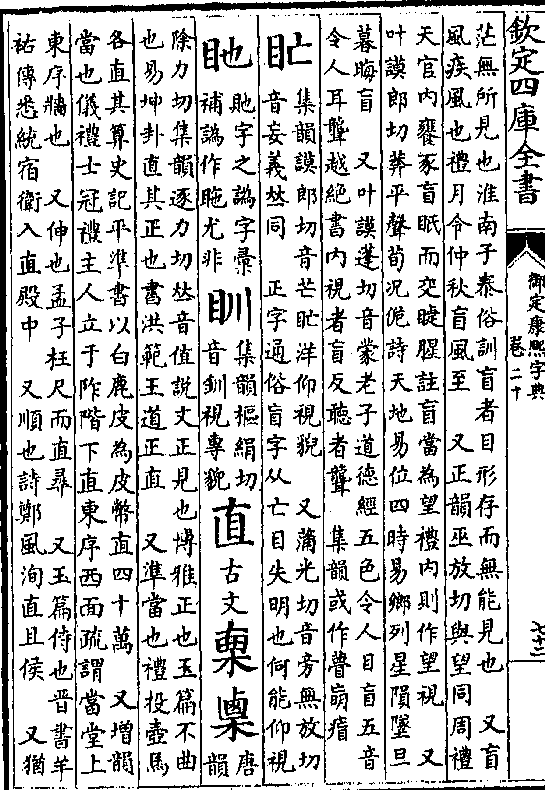 欽定四庫全書
御定康熙字典
卷二十
七十三
茫無所見也淮南子泰俗訓盲者目形存而無能見也 又盲
風疾風也禮月令仲秋盲風至 又正韻巫放切與望同周禮
天官內饔豕盲眡而交睫腥註盲當為望禮內則作望視 又
叶謨郎切莽平聲荀況佹詩天地易位四時易鄉列星隕墜旦
暮晦盲 又叶謨蓬切音蒙老子道德經五色令人目盲五音
令人耳聾越絕書內視者盲反聽者聾 集韻或作瞢
盳 集韻謨郎切音茫盳洋仰視貌 又蒲光切音旁無放切
音妄義𠀤同 正字通俗盲字从亡目失明也何能仰視
貤字之譌字彙
補譌作暆尤非
集韻樞絹切
音釧視專貌
直 古文
唐
韻
除力切集韻逐力切𠀤音值說文正見也博雅正也玉篇不曲
也易坤卦直其正也書洪範王道正直 又準當也禮投壺馬
各直其算史記平準書以白鹿皮為皮幣直四十萬 又增韻
當也儀禮士冠禮主人立于阼階下直東序西面疏謂當堂上
東序牆也 又伸也孟子枉尺而直尋 又玉篇侍也晉書羊
祜傳悉統宿衛入直殿中 又順也詩鄭風洵直且侯 又猶